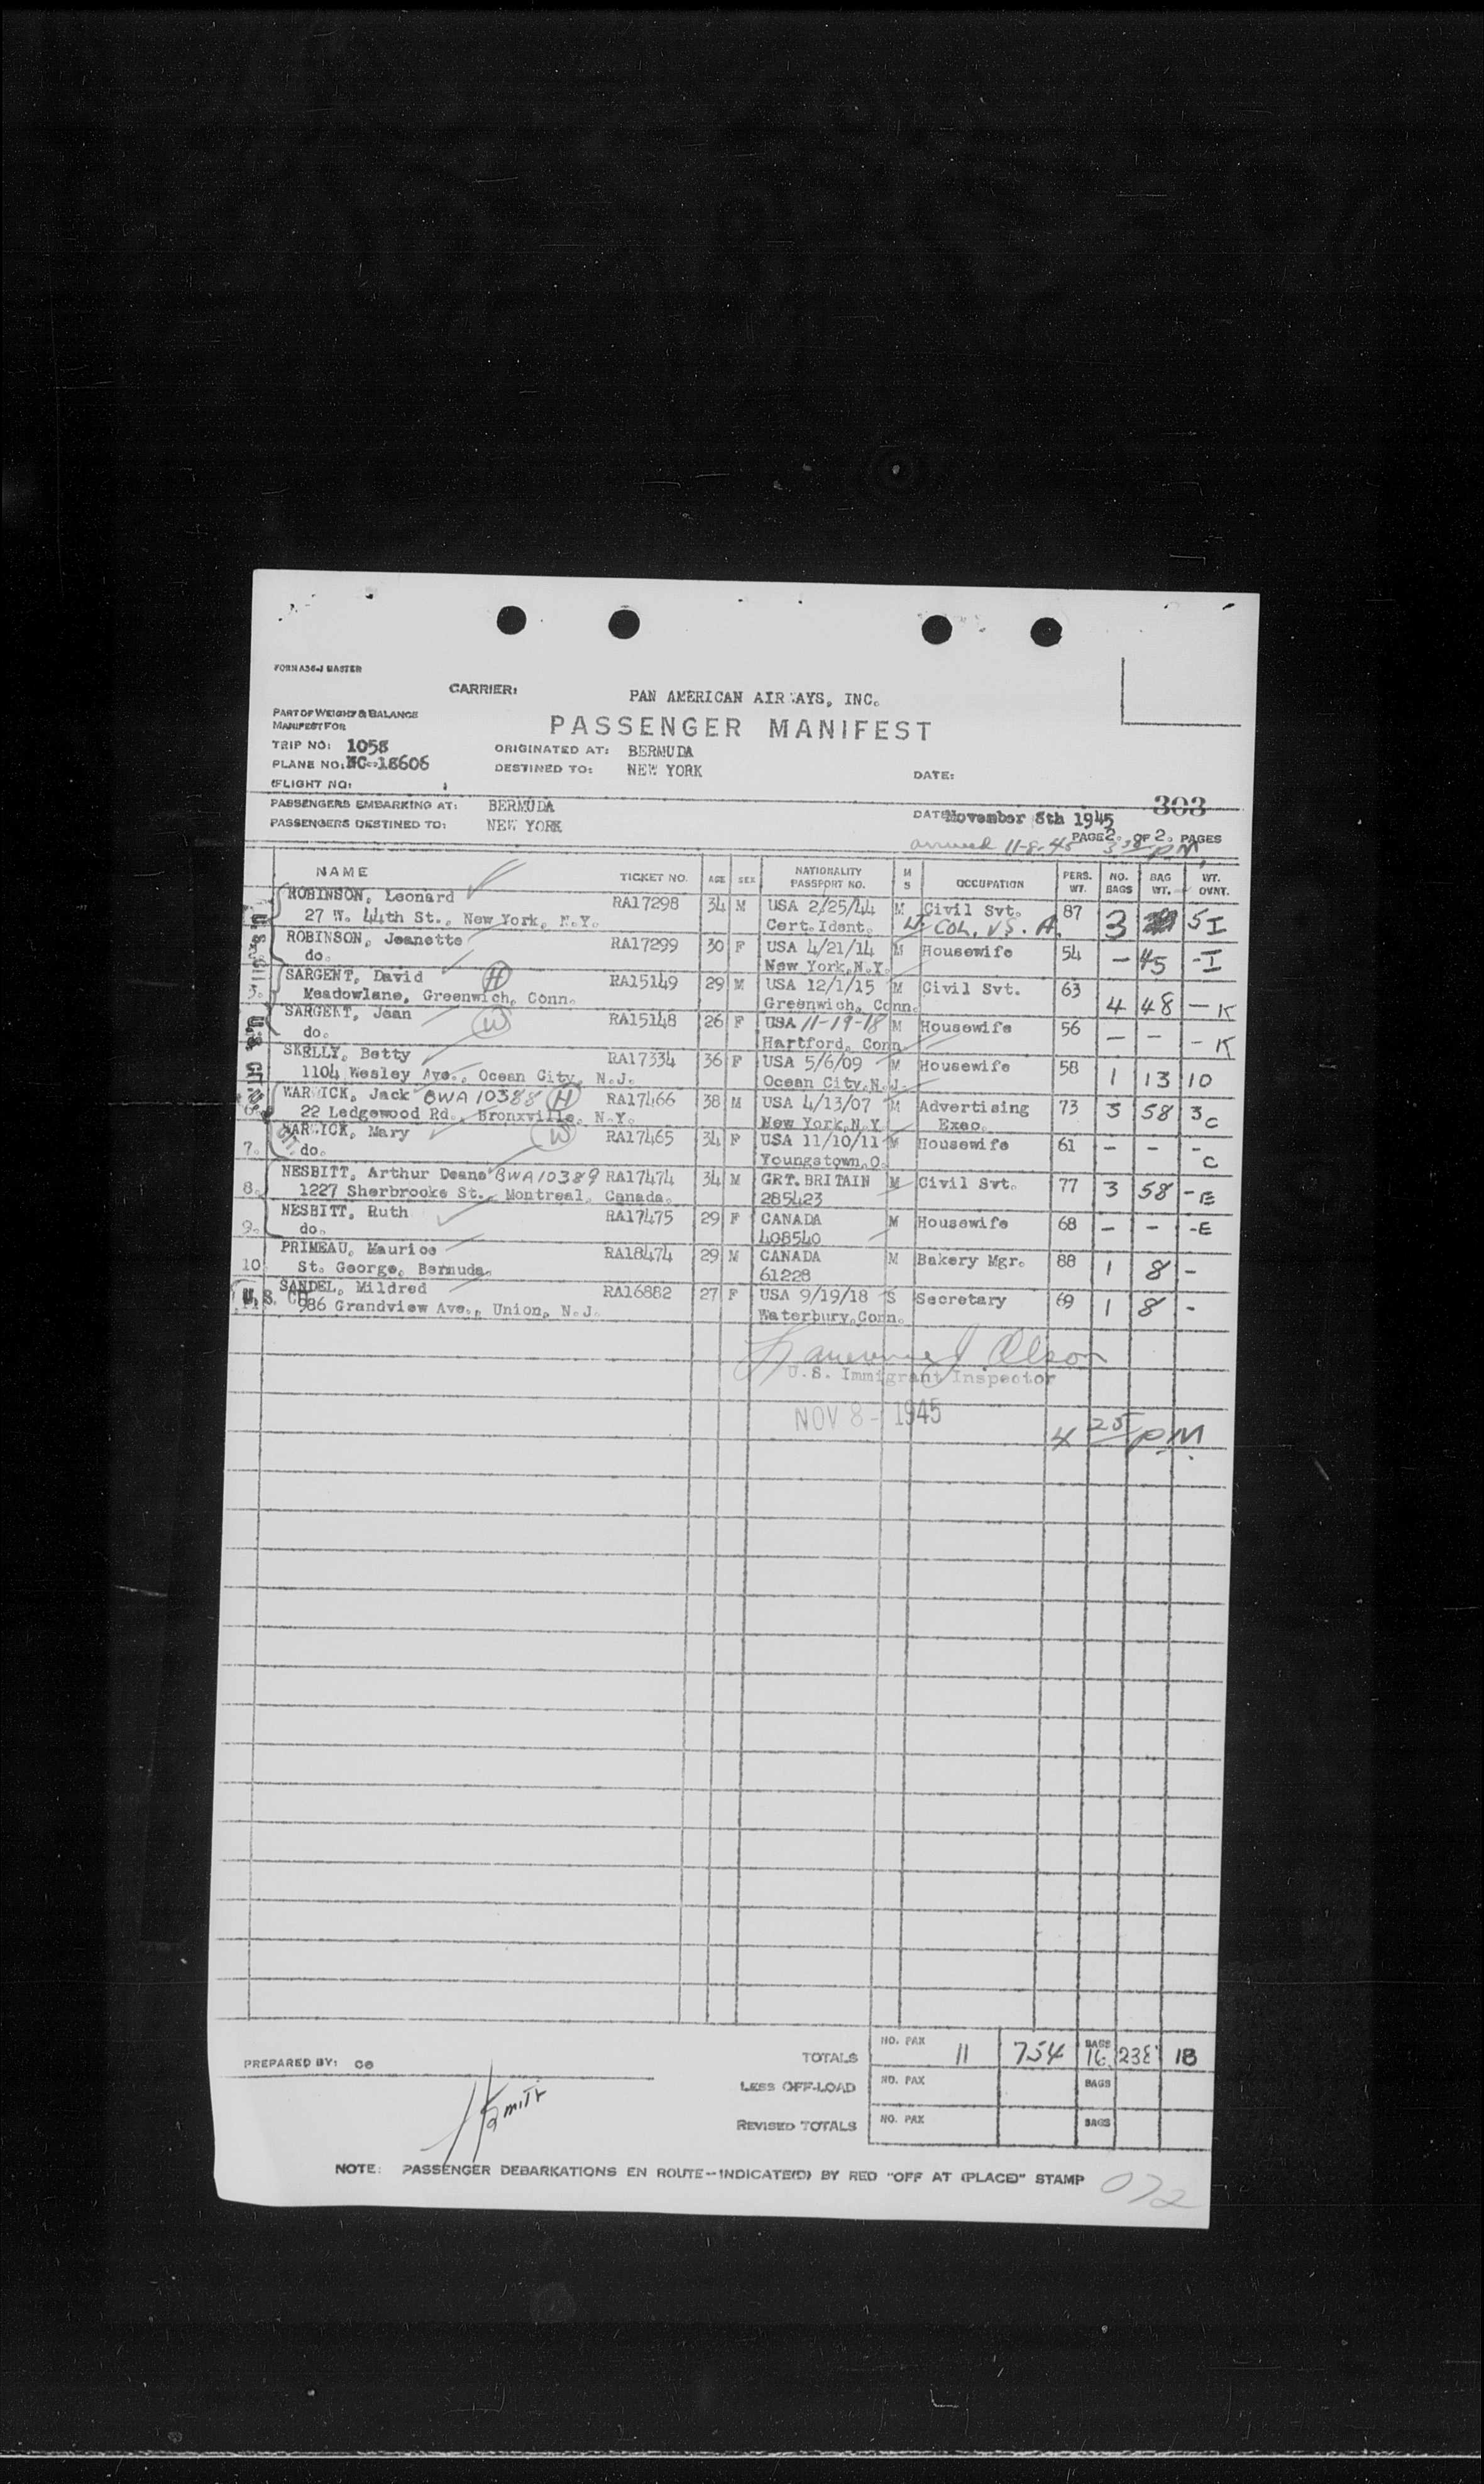 FORM A36-J MASTER
CARRIER: PAN AMERICAN AIRWAYS, INC.
PART OF WEIGHT & BALANCE
MANIFEST FOR
PASSENGER MANIFEST
TRIP NO: 1058 ORIGINATED AT: BERMUDA
PLANE NO: NC-18606 DESTINED TO: NEW YORK DATE:
(FLIGHT NO:
303
PASSENGERS EMBARKING AT: BERMUDA DATE November 8th 1945
PASSENGERS DESTINED TO: NEW YORK PAGE 2. OF 2. PAGES
arrived 11-8-45 PM
NAME TICKET NO. AGE SEX NATIONALITY PASSPORT NO. M S OCCUPATION PERS. WT. NO. BAGS BAG WT. WT. OVNT.
ROBINSON, Leonard RA17298 34 M USA 2/25/44 M Civil Svt. 87 3 5 I
27 W. 44th St., New York, N.Y. Cert. Ident. Lt. Col. U.S. A.
ROBINSON, Jeanette RA17299 30 F USA 4/21/14 M Housewife 54 - 45 - I
do. New York, N.Y.
SARGENT, David H RA15149 29 M USA 12/1/15 M Civil Svt. 63 4 48 - K
3. Meadowlane, Greenwich, Conn. Greenwich, Conn.
SARGENT, Jean W RA15148 26 F USA 11-19-18 M Housewife 56 - - - K
do. Hartford, Conn.
SKELLY, Betty RA17334 36 F USA 5/6/09 M Housewife 58 1 13 10
1104 Wesley Ave., Ocean City, N.J. Ocean City, N.J.
WARWICK, Jack BWA 10388 H RA17466 38 M USA 4/13/07 M Advertising 73 3 58 3 C
22 Ledgewood Rd., Bronxville, N.Y. New York, N.Y. Exec.
WARWICK, Mary W RA17465 34 F USA 11/10/11 M Housewife 61 - - - C
7. do. Youngstown, O.
NESBITT, Arthur Deane BWA 10389 RA17474 34 M GRT. BRITAIN M Civil Svt. 77 3 58 - E
8. 1227 Sherbrooke St., Montreal, Canada. 285423
NESBITT, Ruth RA17475 29 F CANADA M Housewife 68 - - - E
9. do. 408540
PRIMEAU, Maurice RA18474 29 M CANADA M Bakery Mgr. 88 1 8 -
10. St. George, Bermuda. 61228
SANDEL, Mildred RA16882 27 F USA 9/19/18 S Secretary 69 1 8 -
U.S. CIT. 986 Grandview Ave., Union, N.J. Waterbury, Conn.
Olson
U.S. Immigrant Inspector
NOV 8 - 1945
4 25 PM
TOTALS NO. PAX 11 754 BAGS 16 238 18
PREPARED BY:
LESS OFF-LOAD NO. PAX BAGS
Smith
REVISED TOTALS NO. PAX BAGS
NOTE: PASSENGER DEBARKATIONS EN ROUTE--INDICATE(D) BY RED "OFF AT (PLACE)" STAMP
072